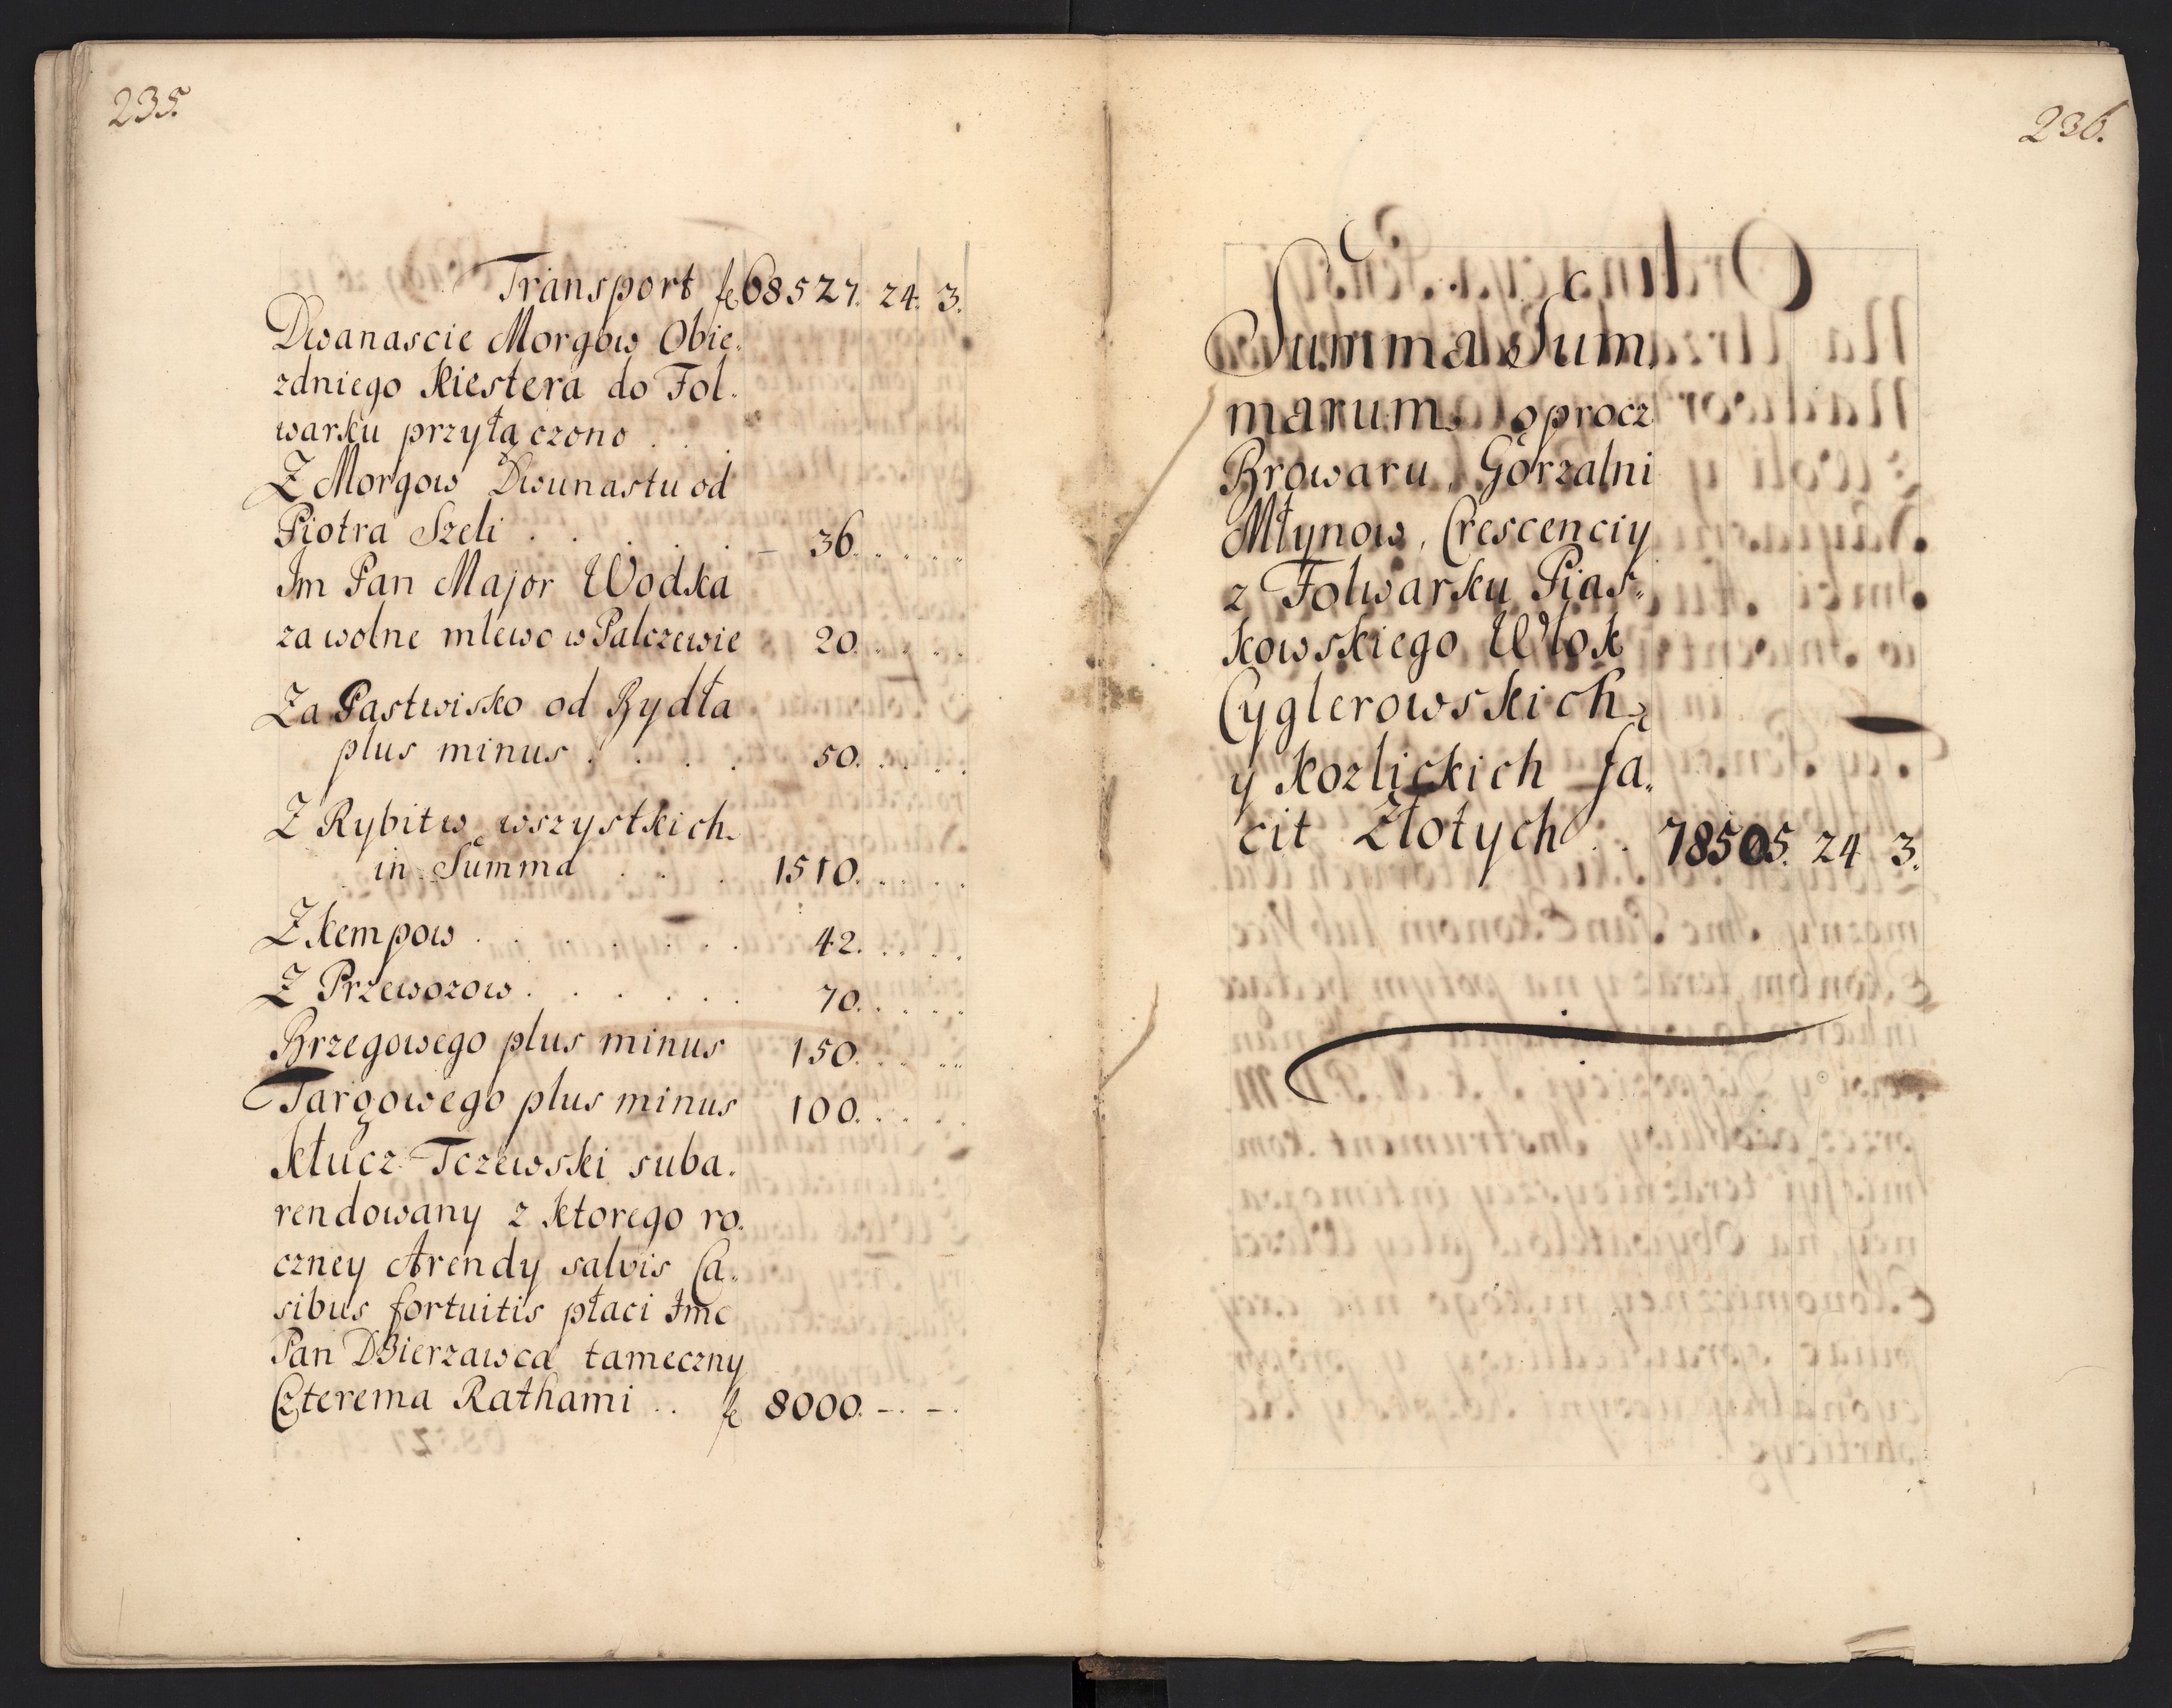 235.
Transport fl 68527. 24. 3.
Dwanascie Morgow Obie.
zdniego Kiestera do Fol.
warku przyłączono . .
Z Morgow Dwunastu od
Piotra Szeli . . . . . – 36. . . . .
Im Pan Major Wodka
za wolne mlewo w Palczewie 20. . . . .
Za Pastwisko od Bydła
plus minus . . . . 50. . . . .
Z Rybitw wszystkich.
in Summa . . . 1510. . . . .
Z Kempow . . . . . . . 42. . . . .
Z Przewozow . . . . . . 70. . . . .
Brzegowego plus minus 150. . . . .
Targowego plus minus 100. . . . .
Klucz Tczewski suba.
rendowany z ktorego ro.
czney Arendy salvis Ca.
sibus fortuitis płaci Imc
Pan Dzierzawca tameczny
Czterema Rathami . . fl 8000. –. –.
236.
Summa Sum.
marum oprocz
Browaru, Gorzalni
Młynow, Crescenciy
z Folwarku Pias.
kowskiego Włok
Cyglerowskich
y Kozlickich fa.
cit Złotych . . 78505. 24 3.